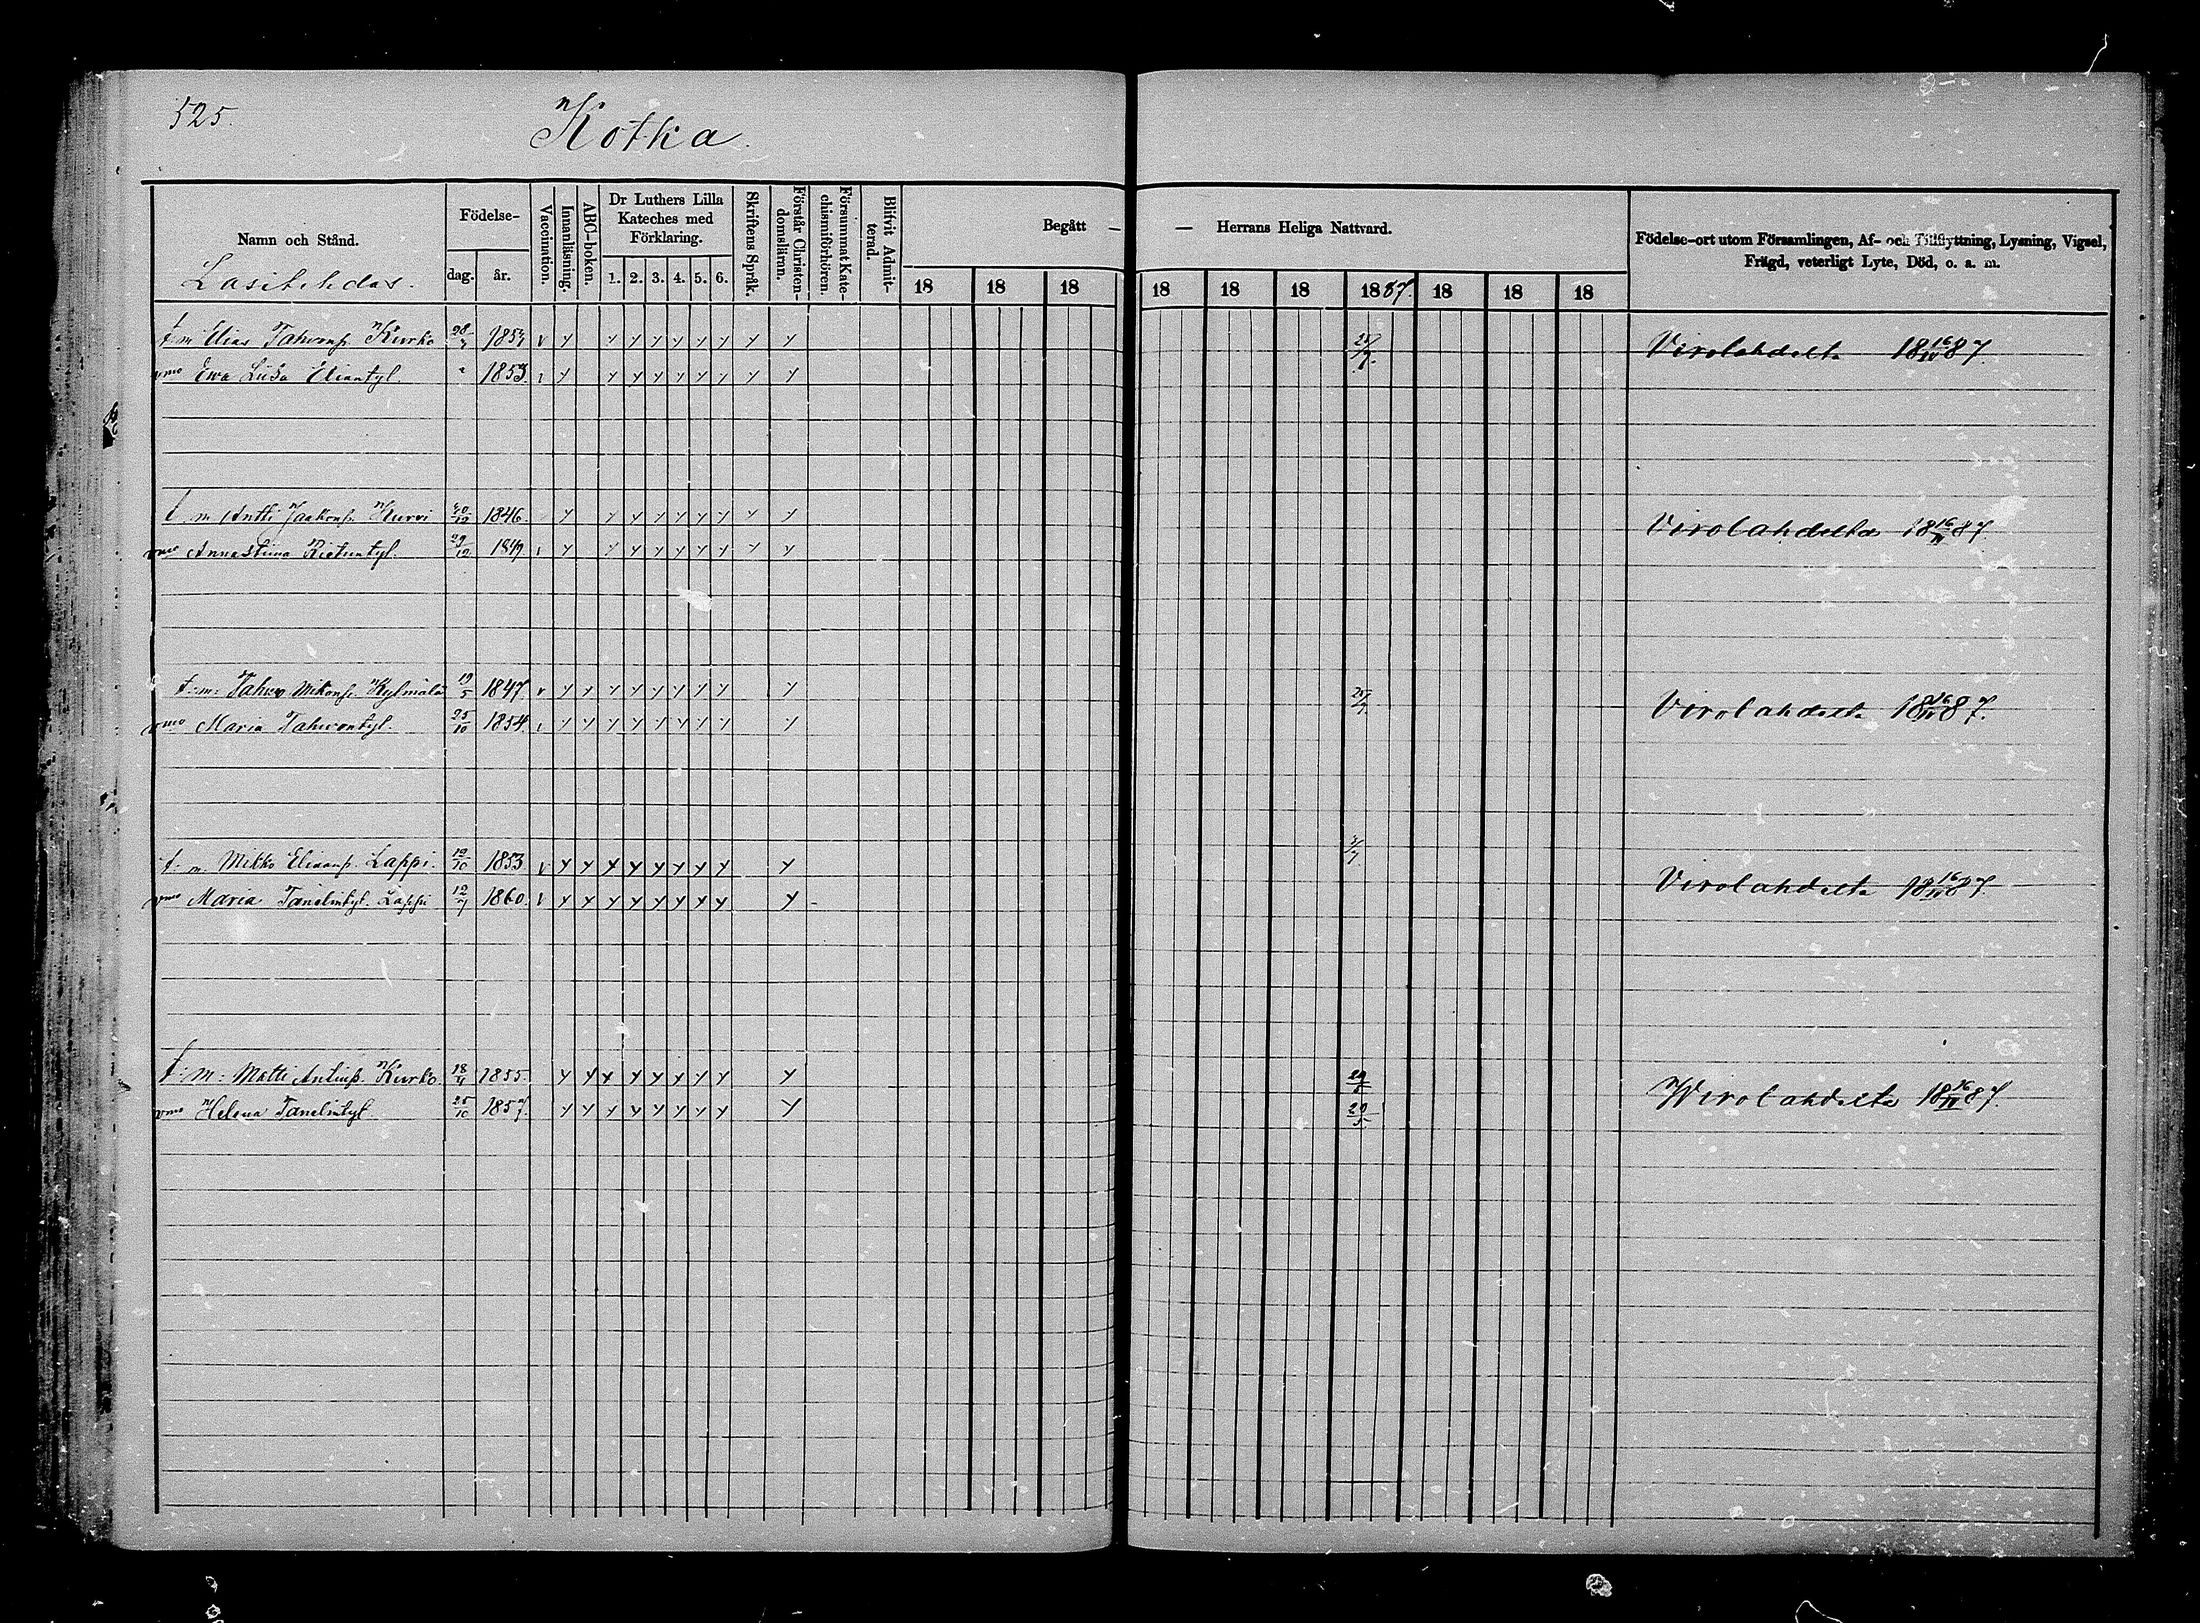 525.
Kotka
Namn och Stånd.
Födelse-
dag. år.
Vaccination.
Innanläsning.
ABC-boken.
Dr Luthers Lilla
Kateches med
Förklaring.
1. 2. 3. 4. 5. 6.
Skriftens Språk.
Förstår Christen-
domslärän.
Försummat Kate-
chismiförhören.
Blifvit Admit-
terad.
Begått — — Herrans Heliga Nattvard.
18 18 18 18 18 18 1887. 18 18 18
Födelse-ort utom Församlingen, Af- och Tillflyttning, Lysning, Vigsel,
Frägd, veterligt Lyte, Död, o. a. m.
t: m Elias Tahvonp. Kurko 1853 v y y y y y y y y y Virolahdelta 18 16/IV 87.
vmo Ewa Liisa Eliantyt. " 1853 v y y y y y y y y y
t. m. Antti Jaakonp. Kurvi 20/12 1846 y y y y y y y y y Virolahdelta 18 16/IV 87
vmo Annastiina 29/12 1849 v y y y y y y y y y
t: m: Tahvo Mikonp. Kylmälä 19/5 1847. v y y y y y y y y y Virolahdelta 18 16/IV 87.
vmo Maria Tahvontyt. 25/10 1854. v y y y y y y y y y
t: m. Mikko Eliaanp. Lappi. 19/10 1853 v y y y y y y y y y Virolahdelta 18 16/IV 87.
vmo Maria Tanelintyt. Lappi 12/7 1860. v y y y y y y y y y
t: m: Matti Antinp. Kurko 18/4 1855. y y y y y y y y y 29/5 Wirolahdelta 18 16/IV 87.
vmo Helena Tanelintyt 25/10 1857. y y y y y y y y y 29/5